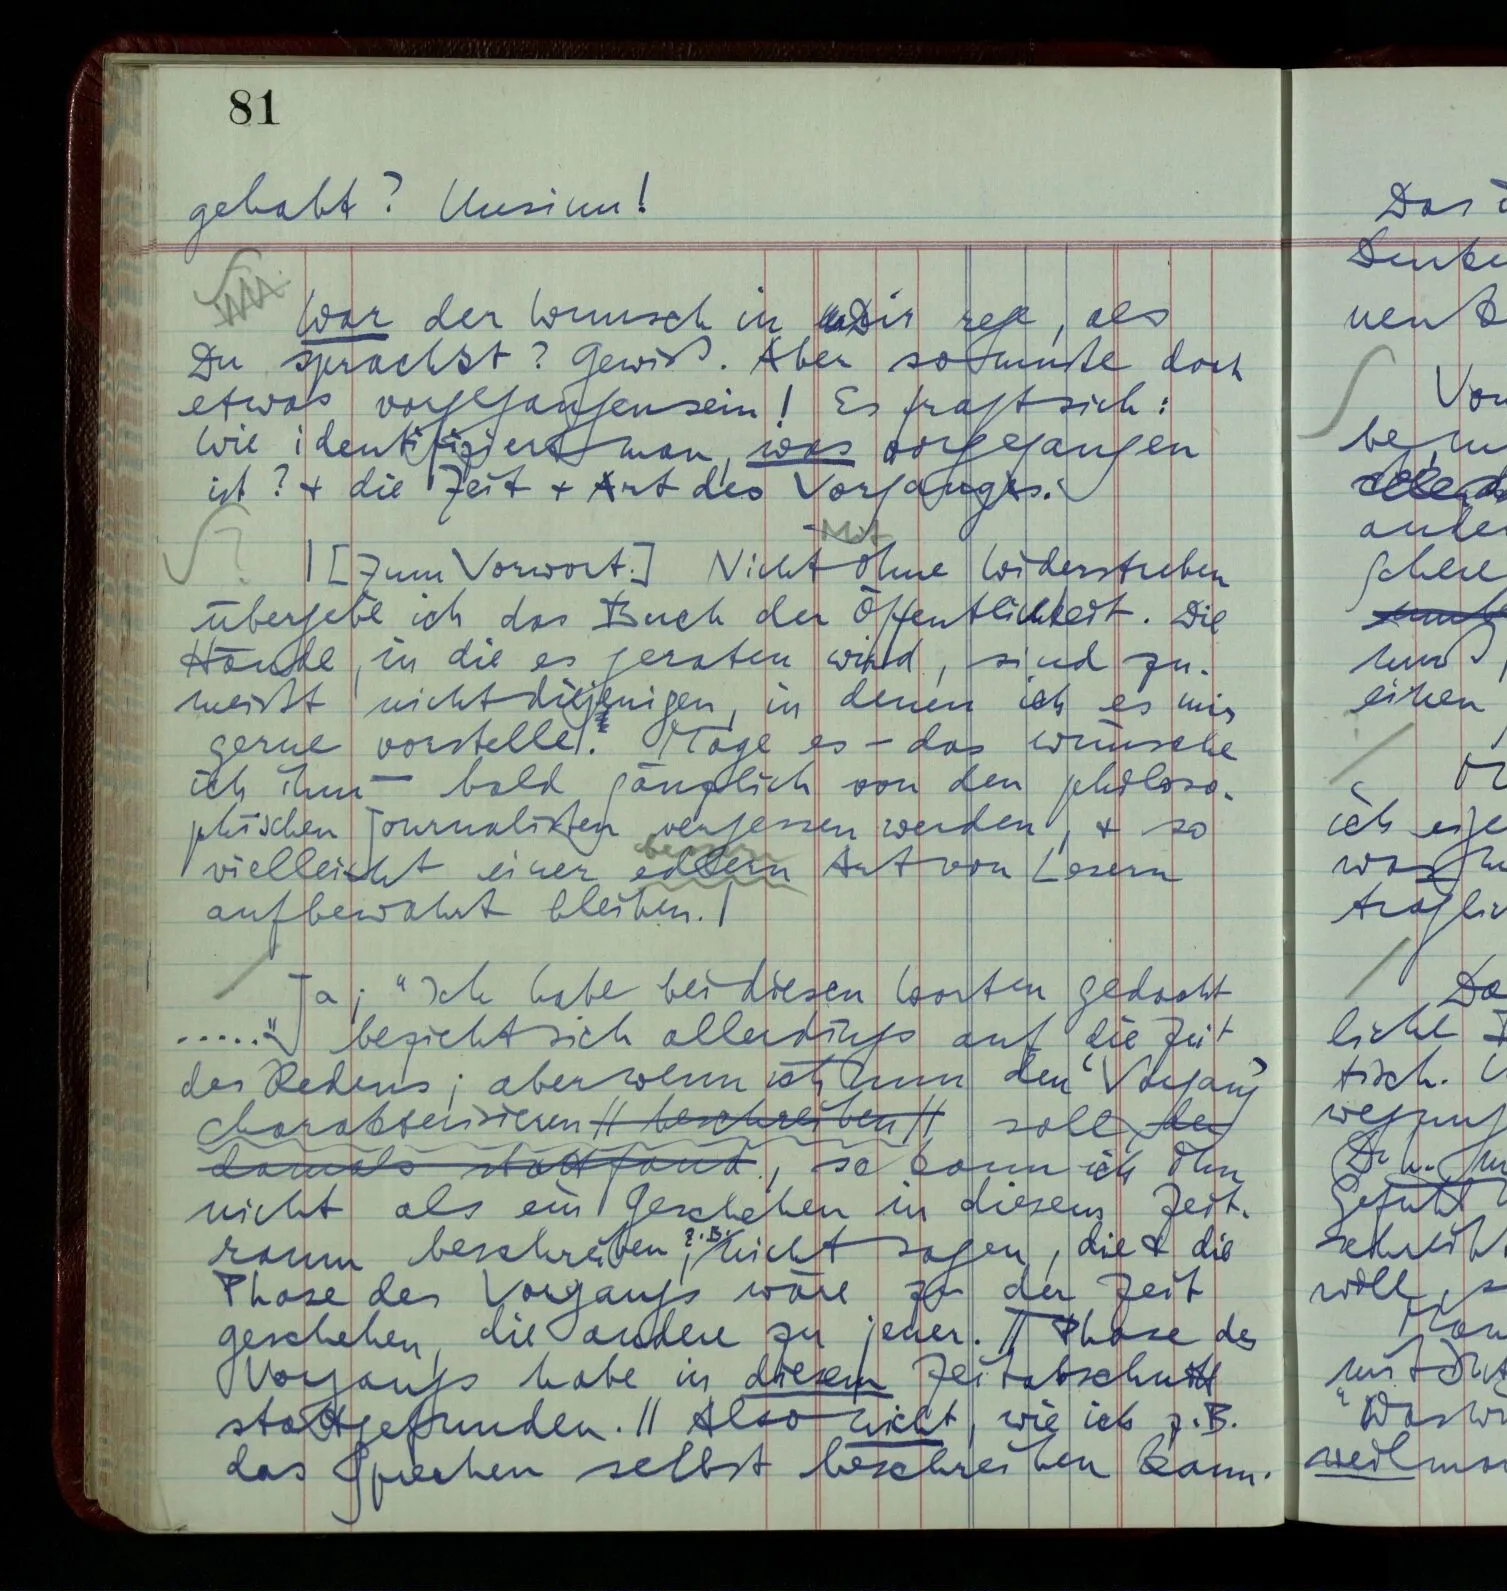 81
gehabt? Unsinn!
War der Wunsch in Dir rege, als
Du sprachst? Gewiß. Aber so mußte doch
etwas vorgegangen sein! Es fragt sich:
Wie identifiziert man, was vorgegangen
ist? + die Zeit + Art des Vorganges.
Mit
| [Zum Vorwort.] Nicht ohne Widerstreben
übergebe ich das Buch der Öffentlichkeit. Die
Hände, in die es geraten wird, sind zu-
meist nicht diejenigen, in denen ich es mir
gerne vorstelle. Möge es – das wünsche
ich ihm – bald gänzlich von den philoso-
phischen Journalisten vergessen werden, + so
bessern
vielleicht einer edlern Art von Lesern
aufbewahrt bleiben. |
Ja; "Ich habe bei diesen Worten gedacht
....." bezieht sich allerdings auf die Zeit
des Redens; aber wenn ich nun den 'Vorgang'
charakterisieren // beschreiben // soll, der
damals stattfand, so kann ich ihn
nicht als ein Geschehen in diesem Zeit-
raum beschreiben; z.B. nicht sagen, die & die
Phase des Vorgangs wäre zu der Zeit
geschehen, die andere zu jener. // Phase des
Vorgangs habe in diesem Zeitabschnitt
stattgefunden. // Also nicht, wie ich z.B.
das Sprechen selbst beschreiben kann.
Das
Denke
ande
einen
ich
Gefühl
will, s
weil man